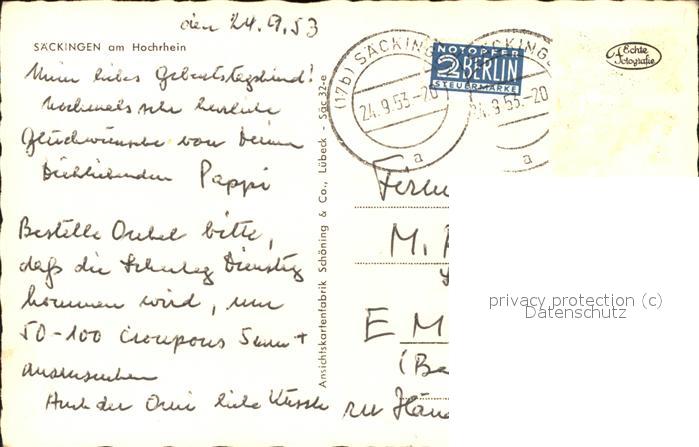 den 24.9.53
SÄCKINGEN am Hochrhein
Mein liebes Geburtstagskind!
Nochmals sehr herzliche
Glückwünsche von Deinem
Dichliebenden Pappi
Bestelle Onkel bitte,
daß die Dienstag
kommen wird, um
50-100 Croupons 5mm +
auszusuchen
Auch der Omi liebe Küsse
Ansichtskartenfabrik Schöning & Co., Lübeck - Säc 32-e
(17b) SÄCKING
24.9.53.-20
a
NOTOPFER
2 BERLIN
STEUERMARKE
CKING
24.9.53.-20
a
Echte
Fotografie
M.
E M
(Ba
zu Hän
privacy protection (c)
Datenschutz